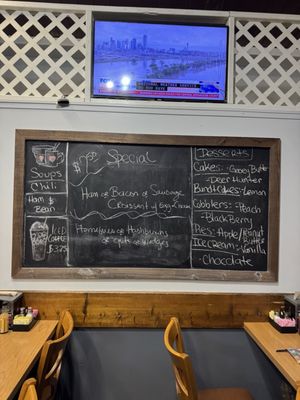 Soups
Chili
Ham &
Bean
ICED
COFFEE
$3.75
Special
Ham or Bacon or Sausage
Croissant w/ Egg & Cheese
Homefries or Hashbrowns
or Grits or Wedges
Desserts
Cakes: - Gooey Butter
- Deer Hunter
Bundt Cakes - Lemon
Cobblers: - Peach
- BlackBerry
Pies: Apple / Peanut Butter
Ice Cream: - Vanilla
- Chocolate